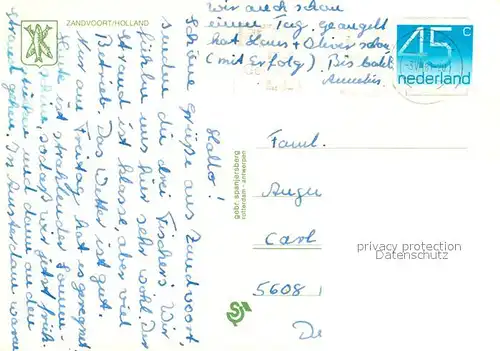 ZANDVOORT/HOLLAND
Hallo!
Schöne Grüße aus Zandvoort,
senden die drei Fischers. Wir
fühlen uns hier sehr wohl. Der
Strand ist klasse, aber viel
Betrieb. Das Wetter ist gut.
Nur am Freitag hat es geregnet.
Heute ist strahlender Sonnen-
schein, sodaß wir jetzt früh-
stücken und dann an den
Strand gehen. In Amsterdam waren
wir auch schon
einen Tag, geangelt
hat Hans + Oliver schon
(mit Erfolg). Bis bald
gebr. spanjersberg
rotterdam - antwerpen
45 c
nederland
Faml.
Augu
Carl
5608
De
privacy protection
Datenschutz